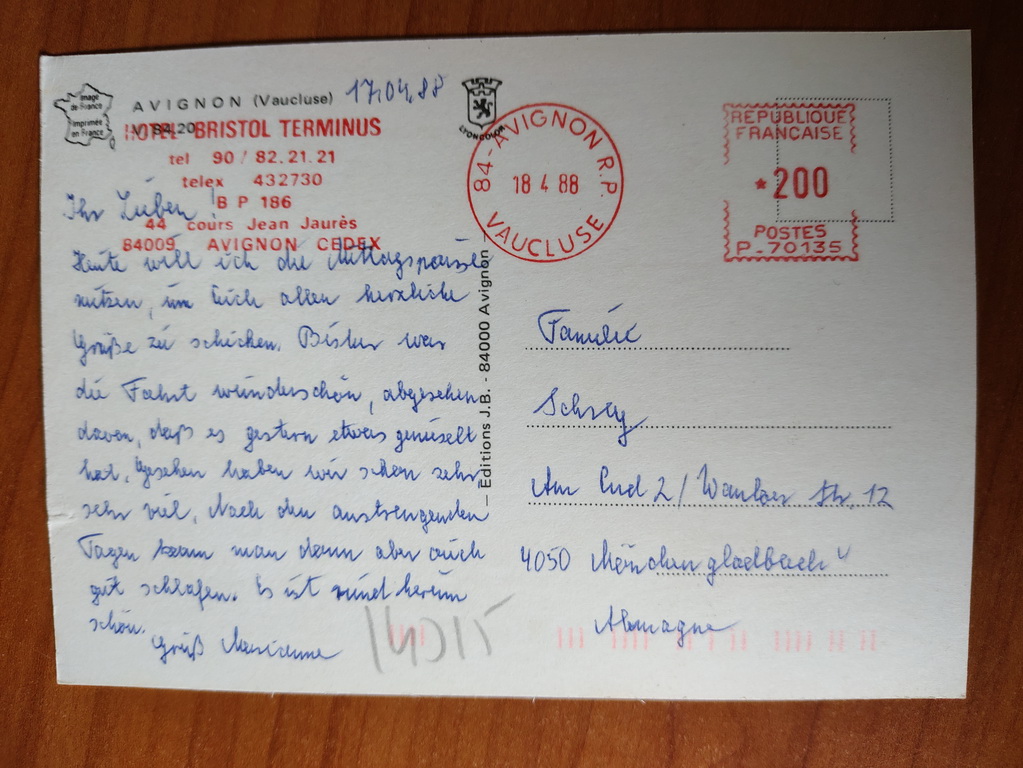 Image
de France
Imprimée
en France
AVIGNON (Vaucluse)
17.04.88
84.20
HOTEL BRISTOL TERMINUS
tel 90 / 82.21.21
telex 432730
B P 186
44 cours Jean Jaurès
84009 AVIGNON CEDEX
LYONCOLOR
Ihr Lieben!
Heute will ich die Mittagspause
nutzen, um Euch allen herzliche
Grüße zu schicken. Bisher war
die Fahrt wunderschön, abgesehen
davon, daß es gestern etwas genieselt
hat. Gesehen haben wir schon sehr
sehr viel. Nach den anstrengenden
Tagen kann man dann aber auch
gut schlafen. Es ist rund herum
schön.
Gruß Marianne
14015
— Editions J.B. - 84000 Avignon —
84-AVIGNON R.P.
18 4 88
VAUCLUSE
REPUBLIQUE
FRANÇAISE
*200
POSTES
P-70135
Familie
Am End 2 / Str. 12
4050 Mönchengladbach
Allemagne